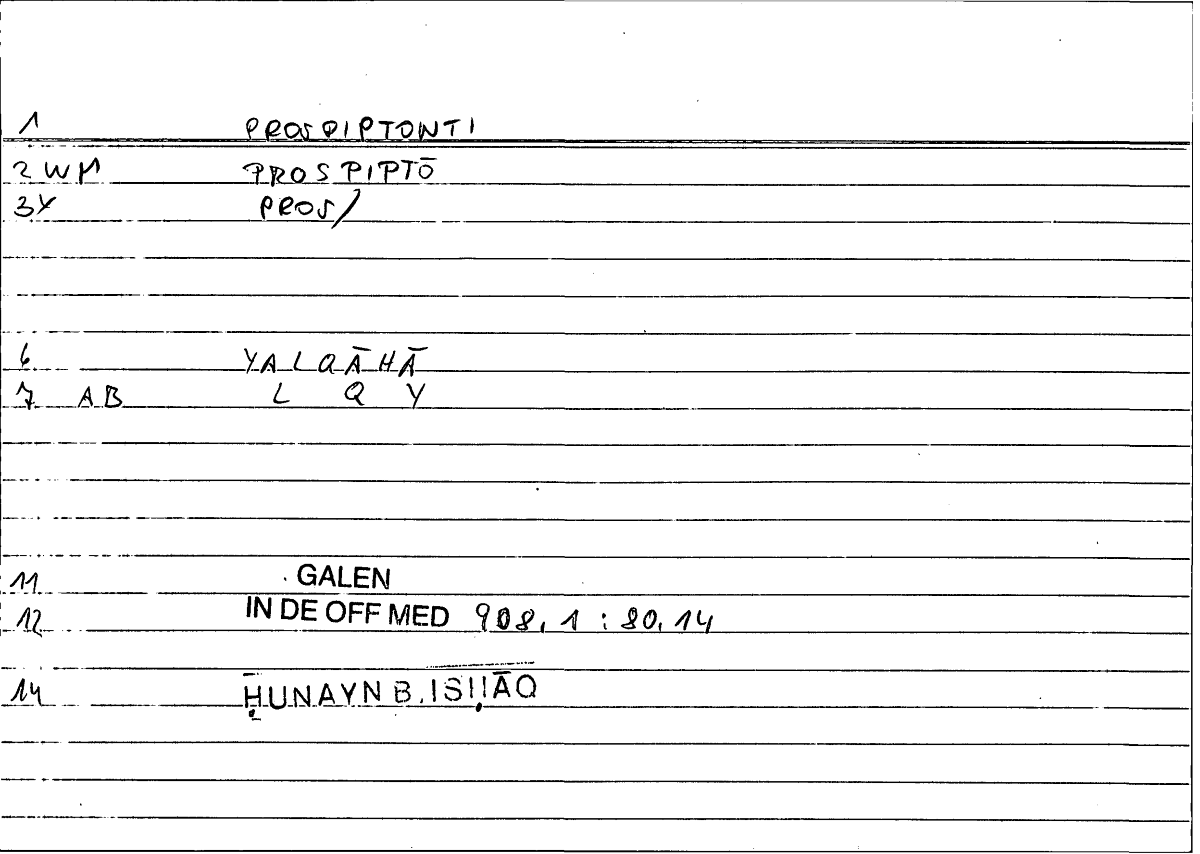 1 PROSPIPTONTI
2 WM PROSPIPTŌ
3Y PROS/
6 YALQĀHĀ
7 AB L Q Y
11 GALEN
12 IN DE OFF MED 908,1 : 80,14
14 ḤUNAYN B. ISḤĀQ